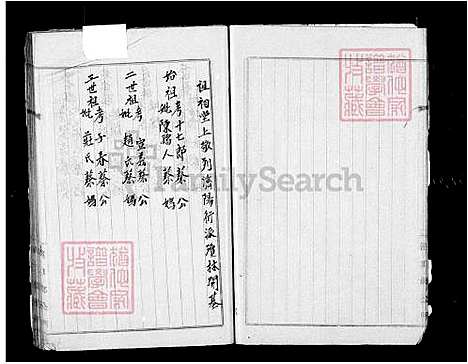 祖祠堂上敬列濟陽衍派瓊林開基
始祖考十七郎蔡公
妣陳孺人蔡媽
二世祖考宣義蔡公
妣趙氏蔡媽
三世祖考子春蔡公
妣莊氏蔡媽
FamilySearch